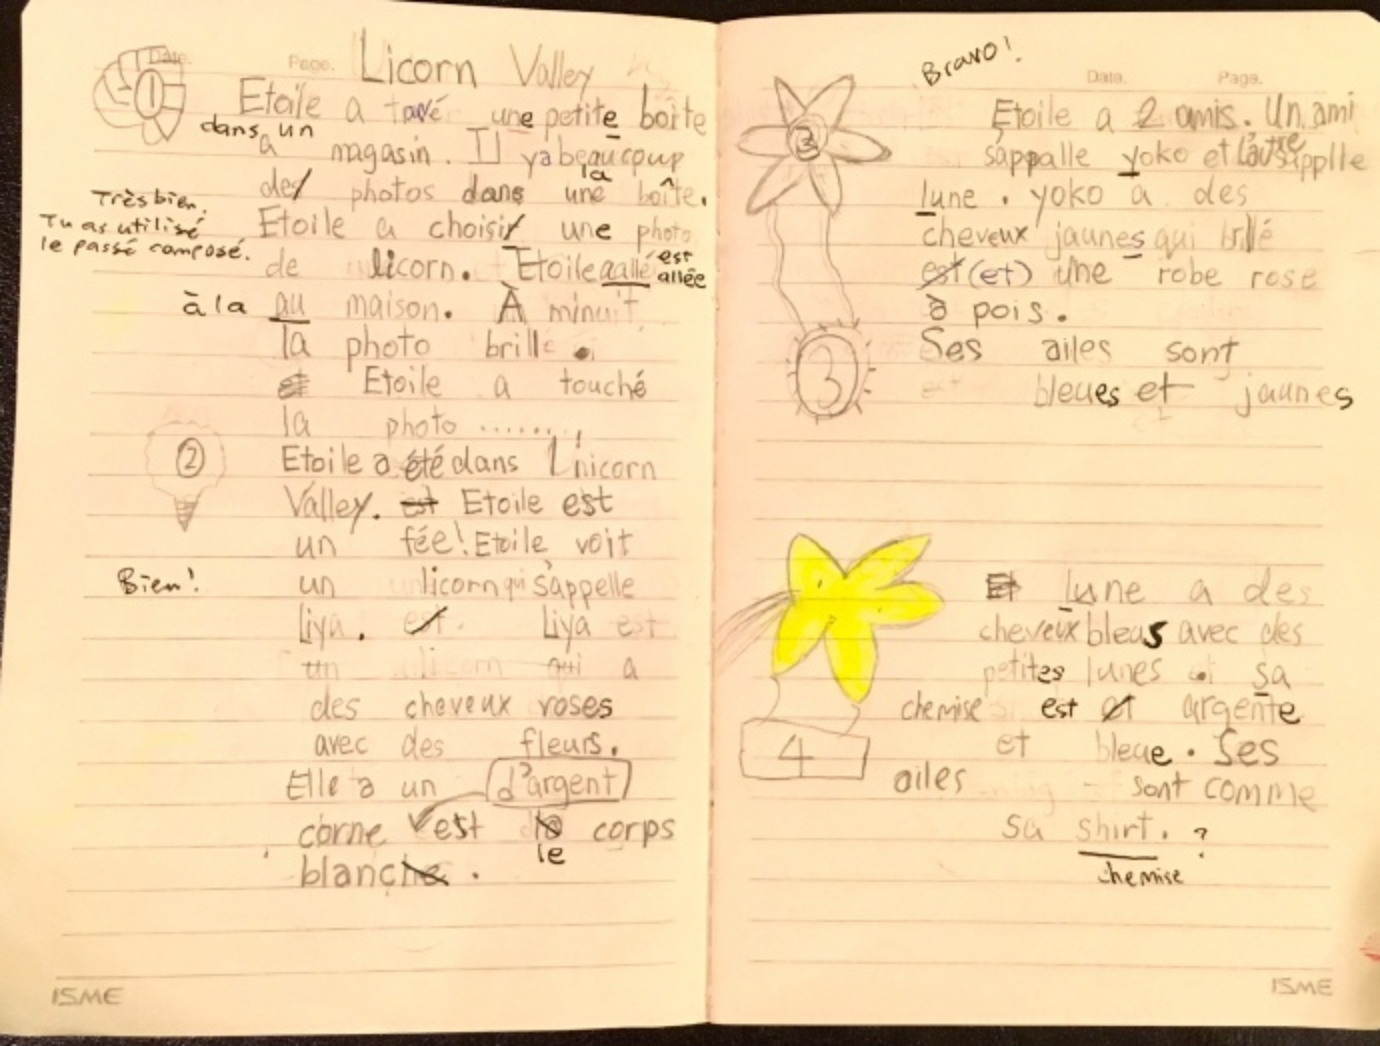 Date.
Page.
Licorn Valley
1
Etoile a une petite boîte
dans un
a magasin. Il ya beaucoup
la
des photos dans une boîte.
Très bien.
Tu as utilisé
le passé composé.
Etoile a choisi une photo
de licorn. Etoile aallé est
allée
à la au maison. À minuit
la photo brille.
Etoile a touché
la photo .......
2
Etoile a été dans Unicorn
Valley. est Etoile est
un fée! Etoile voit
Bien!
un licorn qui s'appelle
Liya. est. Liya est
un licorn qui a
des cheveux roses
avec des fleurs.
Elle a un d'argent
corne est corps
le
blanche.
ISME
Bravo!
Date.
Page.
3
Etoile a 2 amis. Un ami
s'appalle yoko et l'autre s'applle
lune. yoko a des
cheveux jaunes qui brillé
est (et) une robe rose
à pois.
3
Ses ailes sont
bleues et jaunes
4
Et lune a des
cheveux bleus avec des
petites lunes sa
chemise est et argente
et bleue. Ses
ailes sont comme
sa shirt. ?
chemise
ISME